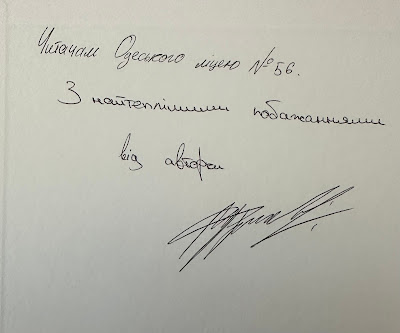 Читачам Одеського ліцею №56.
З найтеплішими побажаннями
від авторки